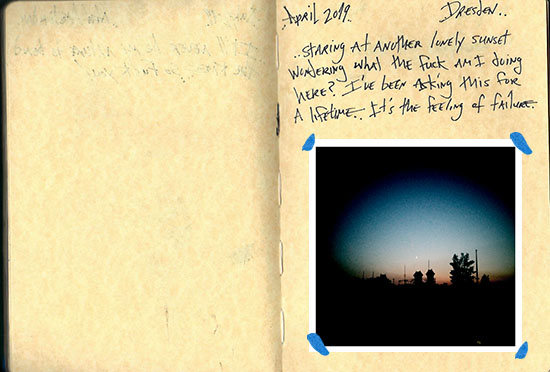 April 2019 Dresden..
..staring at another lonely sunset
wondering what the fuck am I doing
here? I've been asking this for
a lifetime.. It's the feeling of failure.